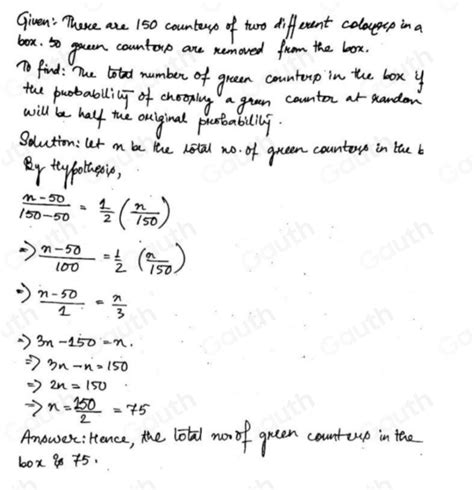 Given: There are 150 counters of two different colours in a
box. 50 green counters are removed from the box.
To find: The total number of green counters in the box if
the probability of choosing a green counter at random
will be half the original probability.
Solution: let n be the total no. of green counters in the b
By Hypothesis,
n-50/150-50 = 1/2 (n/150)
=> n-50/100 = 1/2 (n/150)
=> n-50/1 = n/3
=> 3n-150 = n.
=> 3n-n = 150
=> 2n = 150
=> n = 150/2 = 75
Answer: Hence, the total no of green counters in the
box is 75.
Gauth